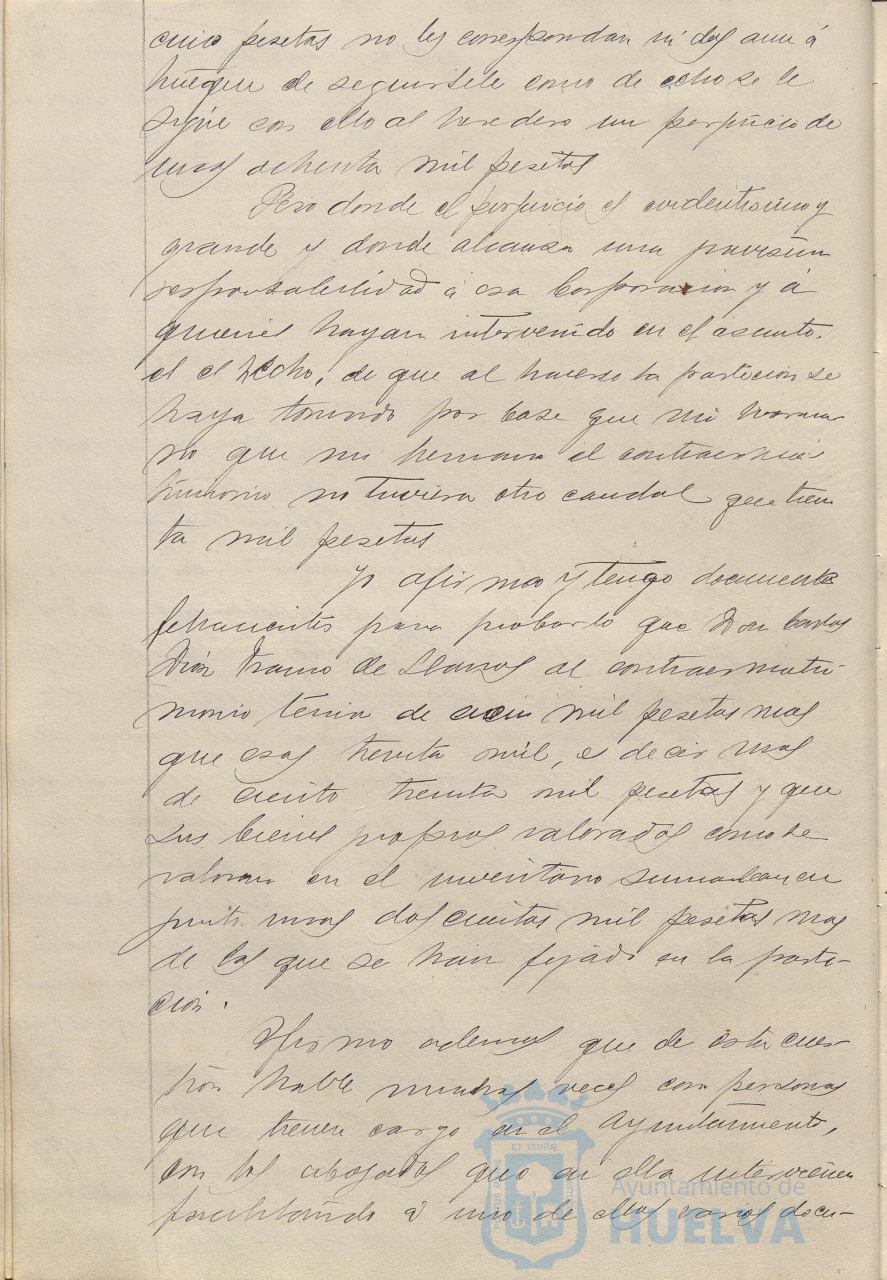 cinco pesetas no les correspondan ni dos aun á
que de seguirsele como de echo se le
sigue con ello al heredero un perjuicio de
unas ochenta mil pesetas
Pero donde el perjuicio es evidentisimo y
grande y donde alcanza una
responsabilidad á esa Corporacion y á
quienes hayan intervenido en el asunto,
es el hecho, de que al hacerse la particion se
haya tomado por base que mi herma
no que mi hermano al contraer ma
trimonio no tuviera otro caudal que trein
ta mil pesetas
Yo afirmo y tengo documentos
fehacientes para probarlo que Don Carlos
Diaz Franco de Llanos al contraer matri-
monio tenia de cien mil pesetas mas
que esas treinta mil, es decir mas
de ciento treinta mil pesetas y que
sus bienes propios valorados como se
valoran en el inventario sumaban en
junto unas doscientas mil pesetas mas
de las que se han fijado en la parti-
cion.
Afirmo ademas que de esta cues-
tion hable muchas veces con personas
que tienen cargo en el Ayuntamiento,
con los abogados que en ella intervienen
facilitando á uno de ellos varios docu-
ET TERRÆ
Ayuntamiento de
HUELVA